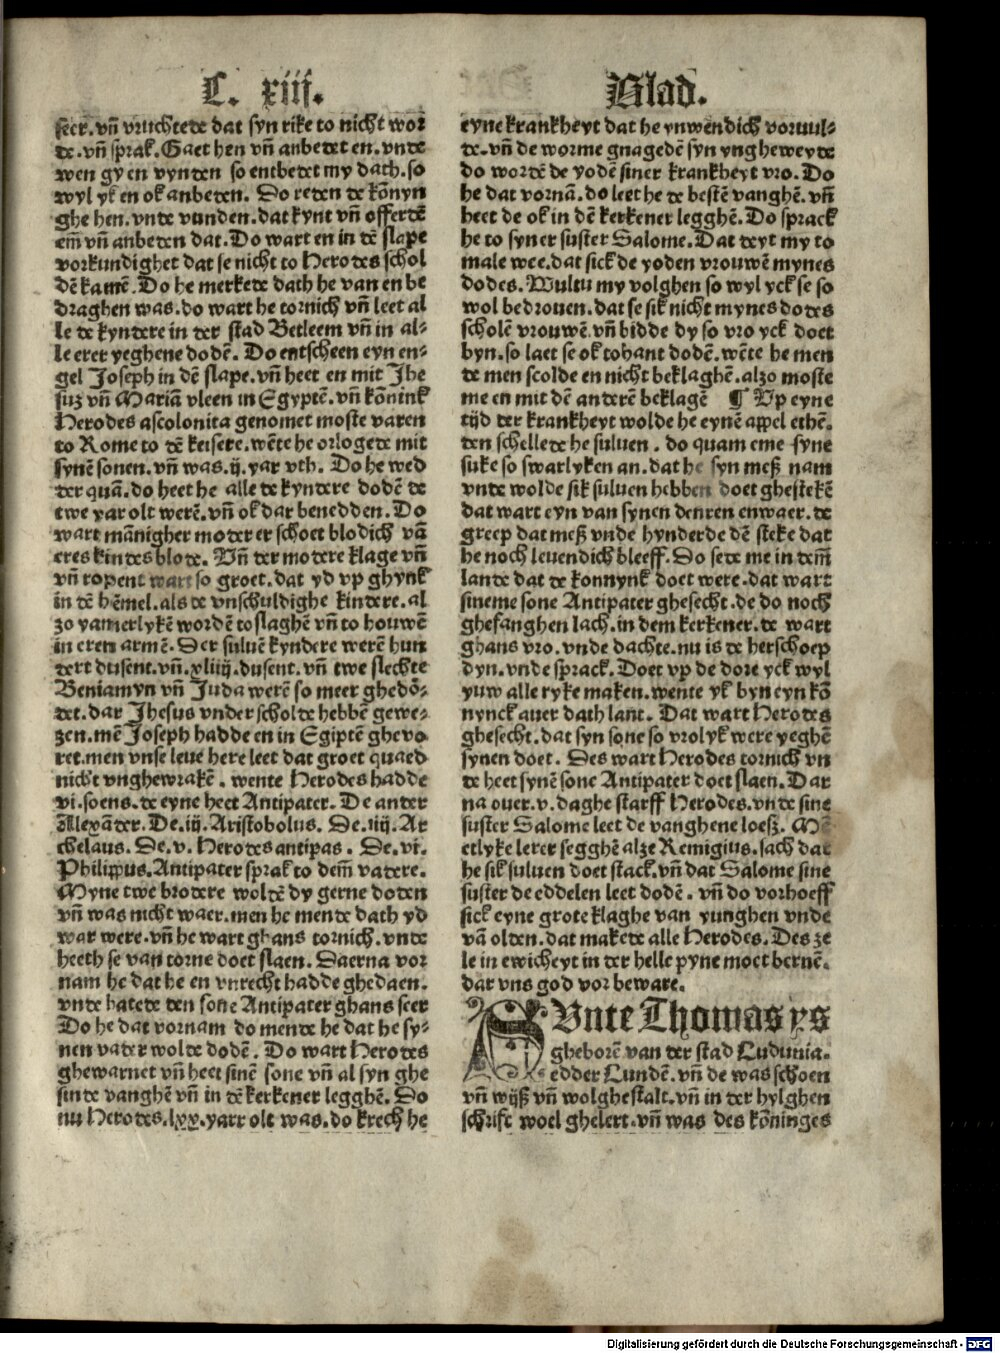 C. xiij. Blad.
seer. vn̄ vruchtede dat syn rike to nicht wor
de. vn̄ sprak. Gaet hen vn̄ anbedet en. vnde
wen gy en vynden so entbedet my dath. so
wyl yk en ok anbeten. Do reden de kōnyn
ghe hen. vnde vunden. dat kynt vn̄ offerdē
em̄ vn̄ anbeden dat. Do wart en in dē slape
vorkundighet dat se nicht to Herodes schol
dē kamē. Do he merkede dath he van en be
draghen was. do wart he tornich vn̄ leet al
le de kyndere in der stad Betleem vn̄ in al-
le erer yeghene dodē. Do entscheen eyn en-
gel Joseph in dē slape. vn̄ heet en mit Jhe
suz vn̄ Mariā vleen in Egyptē. vn̄ kōnink
Herodes ascolonita genomet moste varen
to Rome to dē keisere. wēte he orlogede mit
synē sonen. vn̄ was. ij. yar vth. Do he wed
der quā. do heet he alle de kyndere dodē de
twe yar olt werē. vn̄ ok dar benedden. Do
wart mānigher moder er schoet blodich vā
eres kindes blode. Vn̄ der modere klage vn̄
vn̄ ropent wart so groet. dat yd vp ghynk
in dē hēmel. als de vnschuldighe kindere. al
zo yamerlykē wordē to slaghē vn̄ to houwē
in eren armē. Der suluē kyndere werē hun
dert dusent. vn̄. xliiij. dusent. vn̄ twe slechte
Beniamyn vn̄ Juda werē so meer ghedō-
det. dar Jhesus vnder scholde hebbē gewe-
zen. mē Joseph hadde en in Egiptē ghevo
ret. men vnse leue here leet dat groet quaed
nicht vnghewrakē. wente Herodes hadde
vi. soens. de eyne heet Antipater. De ander
Alexāder. De. iij. Aristobolus. De. iiij. Ar
chelaus. De. v. Herodes antipas. De. vi.
Philippus. Antipater sprak to dem̄ vadere.
Myne twe brodere woldē dy gerne doden
vn̄ was nicht waer. men he mende dath yd
war were. vn̄ he wart ghans tornich. vnde
heeth se van torne doet slaen. Daerna vor
nam he dat he en vnrecht hadde ghedaen.
vnde hatede den sone Antipater ghans seer
Do he dat vornam do mende he dat he sy-
nen vader wolde dodē. Do wart Herodes
ghewarnet vn̄ heet sinē sone vn̄ al syn ghe
sinde vanghē vn̄ in dē kerkener legghē. Do
nu Herodes. lxx. yarr olt was. do krech he
eyne krankheyt dat he ynwendich voruul-
de. vn̄ de worme gnagedē syn yngheweyde
do wordē de yodē siner krankheyt vro. Do
he dat vornā. do leet he de bestē vanghē. vn̄
heet de ok in dē kerkener legghē. Do sprack
he to syner suster Salome. Dat deyt my to
male wee. dat sick de yoden vrouwē mynes
dodes. Wultu my volghen so wyl yck se so
wol bedrouen. dat se sik nicht mynes dodes
scholē vrouwē vn̄ bidde dy so vro yck doet
byn. so laet se ok tohant dodē. wēte he men
de men scolde en nicht beklaghē. alzo moste
me en mit dē anderē beklagē ¶ Vp eyne
tijd der krankheyt wolde he eynē appel ethē.
den schellede he suluen. do quam eme syne
suke so swarlyken an. dat he syn meß nam
vnde wolde sik suluen hebben doet ghestekē
dat wart eyn van synen denren enwaer. de
greep dat meß vnde hynderde dē steke dat
he noch leuendich bleeff. Do sede me in dem̄
lande dat de konnynk doet were. dat wart
sineme sone Antipater ghesecht. de do noch
ghefanghen lach. in dem kerkener. de wart
ghans vro. vnde dachte. nu is de herschoep
dyn. vnde sprack. Doet vp de dore yck wyl
yuw alle ryke maken. wente yk byn eyn kō
nynck auer dath lant. Dat wart Herodes
ghesecht. dat syn sone so vrolyk were yeghē
synen doet. Des wart Herodes tornich vn
de heet synē sone Antipater doet slaen. Dar
na ouer. v. daghe starff Herodes. vnde sine
suster Salome leet de vanghene loeß. Mē
etlyke lerer segghē alze Remigius. sach dat
he sik suluen doet stack. vn̄ dat Salome sine
suster de eddelen leet dodē. vn̄ do vorhoeff
sick eyne grote klaghe van yunghen vnde
vā olden. dat makede alle Herodes. Des ze
le in ewicheyt in der helle pyne moet bernē.
dar vns god vor beware.
SVnte Thomas ys
gheborē van der stad Ludunia.
edder Lundē. vn̄ de was schoen
vn̄ wijß vn̄ wolghestalt. vn̄ in der hylghen
schrift woel ghelert. vn̄ was des kōninges
Digitalisierung gefördert durch die Deutsche Forschungsgemeinschaft - DFG